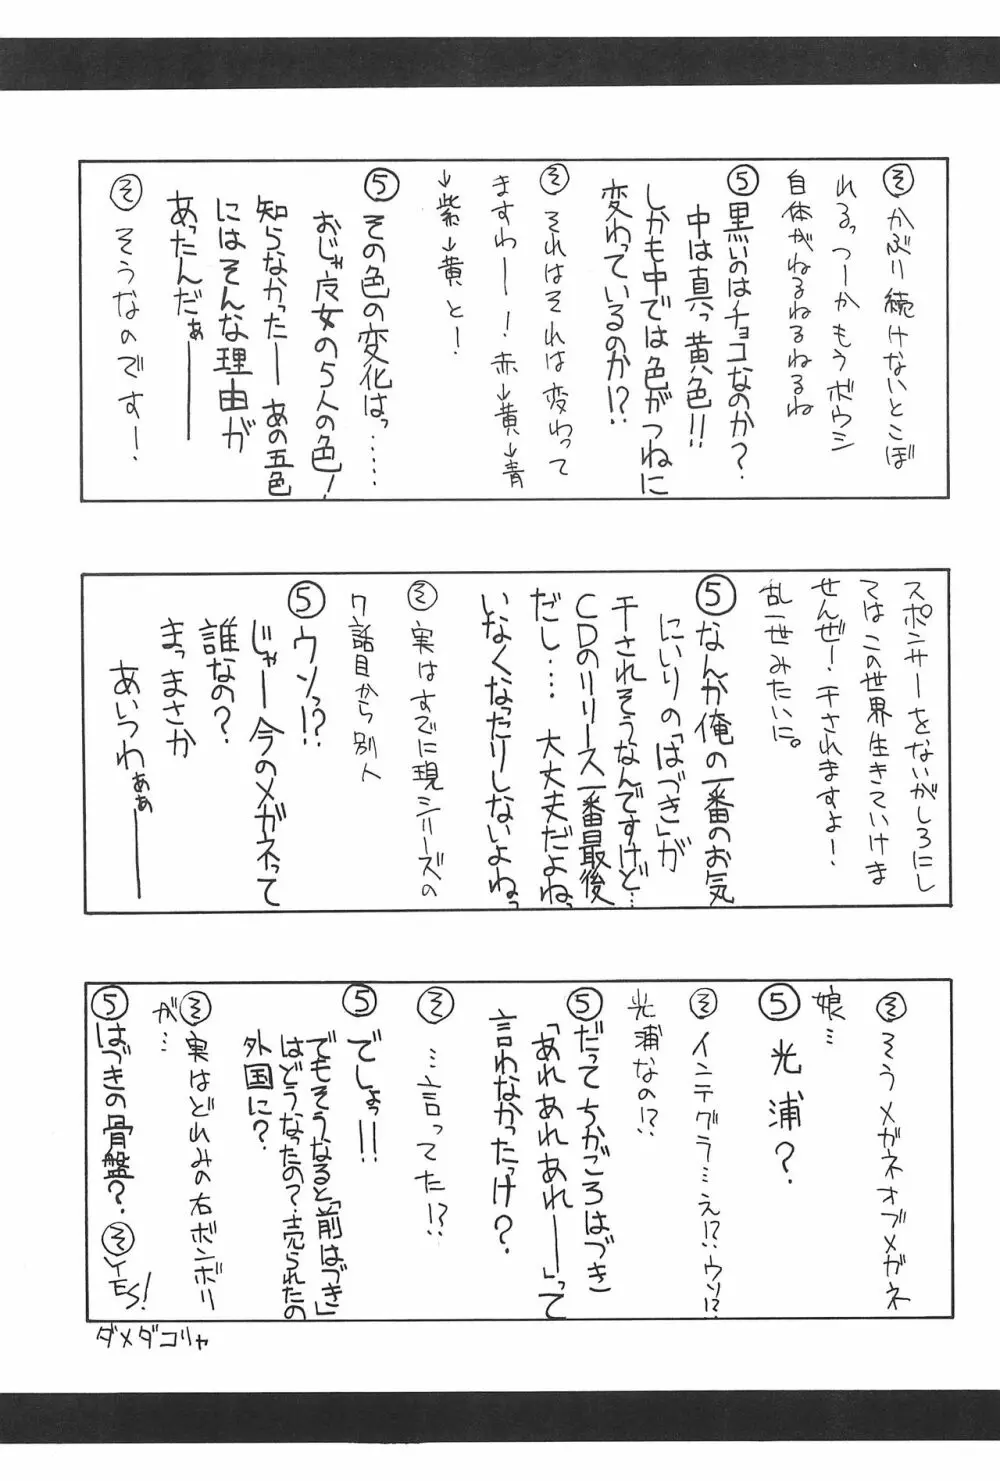 そ かぶり続けないとこぼ
れるっつーかもうボウシ
自体がねるねるねるね
5 黒いのはチョコなのか?
中は真っ黄色!!
しかも中では色がつねに
変わっているのか!?
そ それはそれは変わって
ますわー! 赤→黄→青
→紫→黄と!
5 その色の変化はっ……
おじゃ魔女の5人の色!
知らなかったー あの五色
にはそんな理由が
あったんだぁーー
そ そうなのですー!
スポンサーをないがしろにし
てはこの世界生きていけま
せんぜー! 干されますよー!
乱一世みたいに。
5 なんか俺の一番のお気
にいりの「はづき」が
干されそうなんですけど…
CDのリリース一番最後
だし… 大丈夫だよねっ
いなくなったりしないよねっ
そ 実はすでに現シリーズの
7話目から別人
5 ウソっ!?
じゃー今のメガネって
誰なの?
まっまさか
あいつわぁぁーー
そ そうメガネオブメガネ
娘…
5 光浦?
そ インテグラ…え!?ウソ!?
光浦なの!?
5 だってちかごろはづき
「あれあれあれー」って
言わなかったっけ?
そ …言ってた!?
5 でしょっ!!
でもそうなると「前はづき」
はどうなったの?売られたの
外国に?
そ 実はどれみの右ボンボリ
が…
5 はづきの骨盤? そ YES!
ダメダコリャ